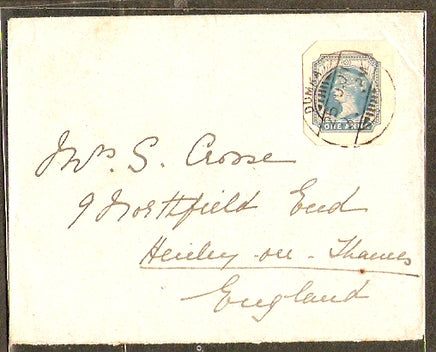 DUMKA
ONE
Mrs S. Crosse
9 Northfield End
Henley-on-Thames
England